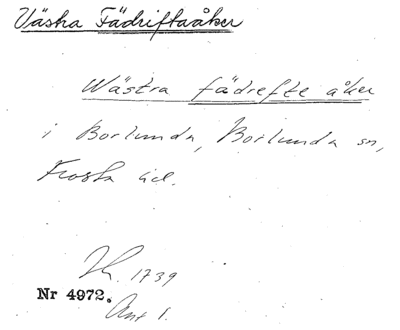 Västra Fädriftaåker
Wästra fädrefte åker
i Borlunda, Borlunda sn,
Frosta hd.
1739
Nr 4972.
Ant 1.